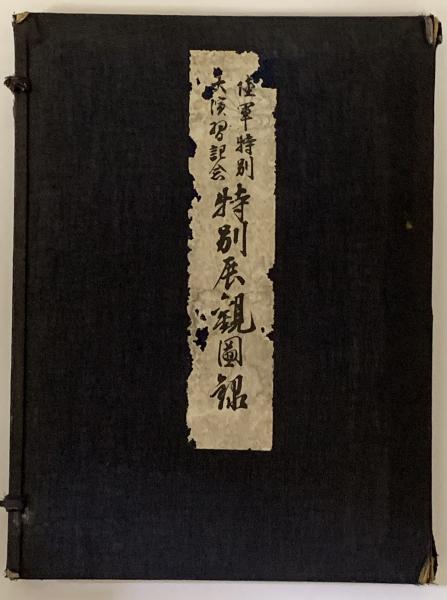 陸軍特別
大演習記念
特別展観圖録